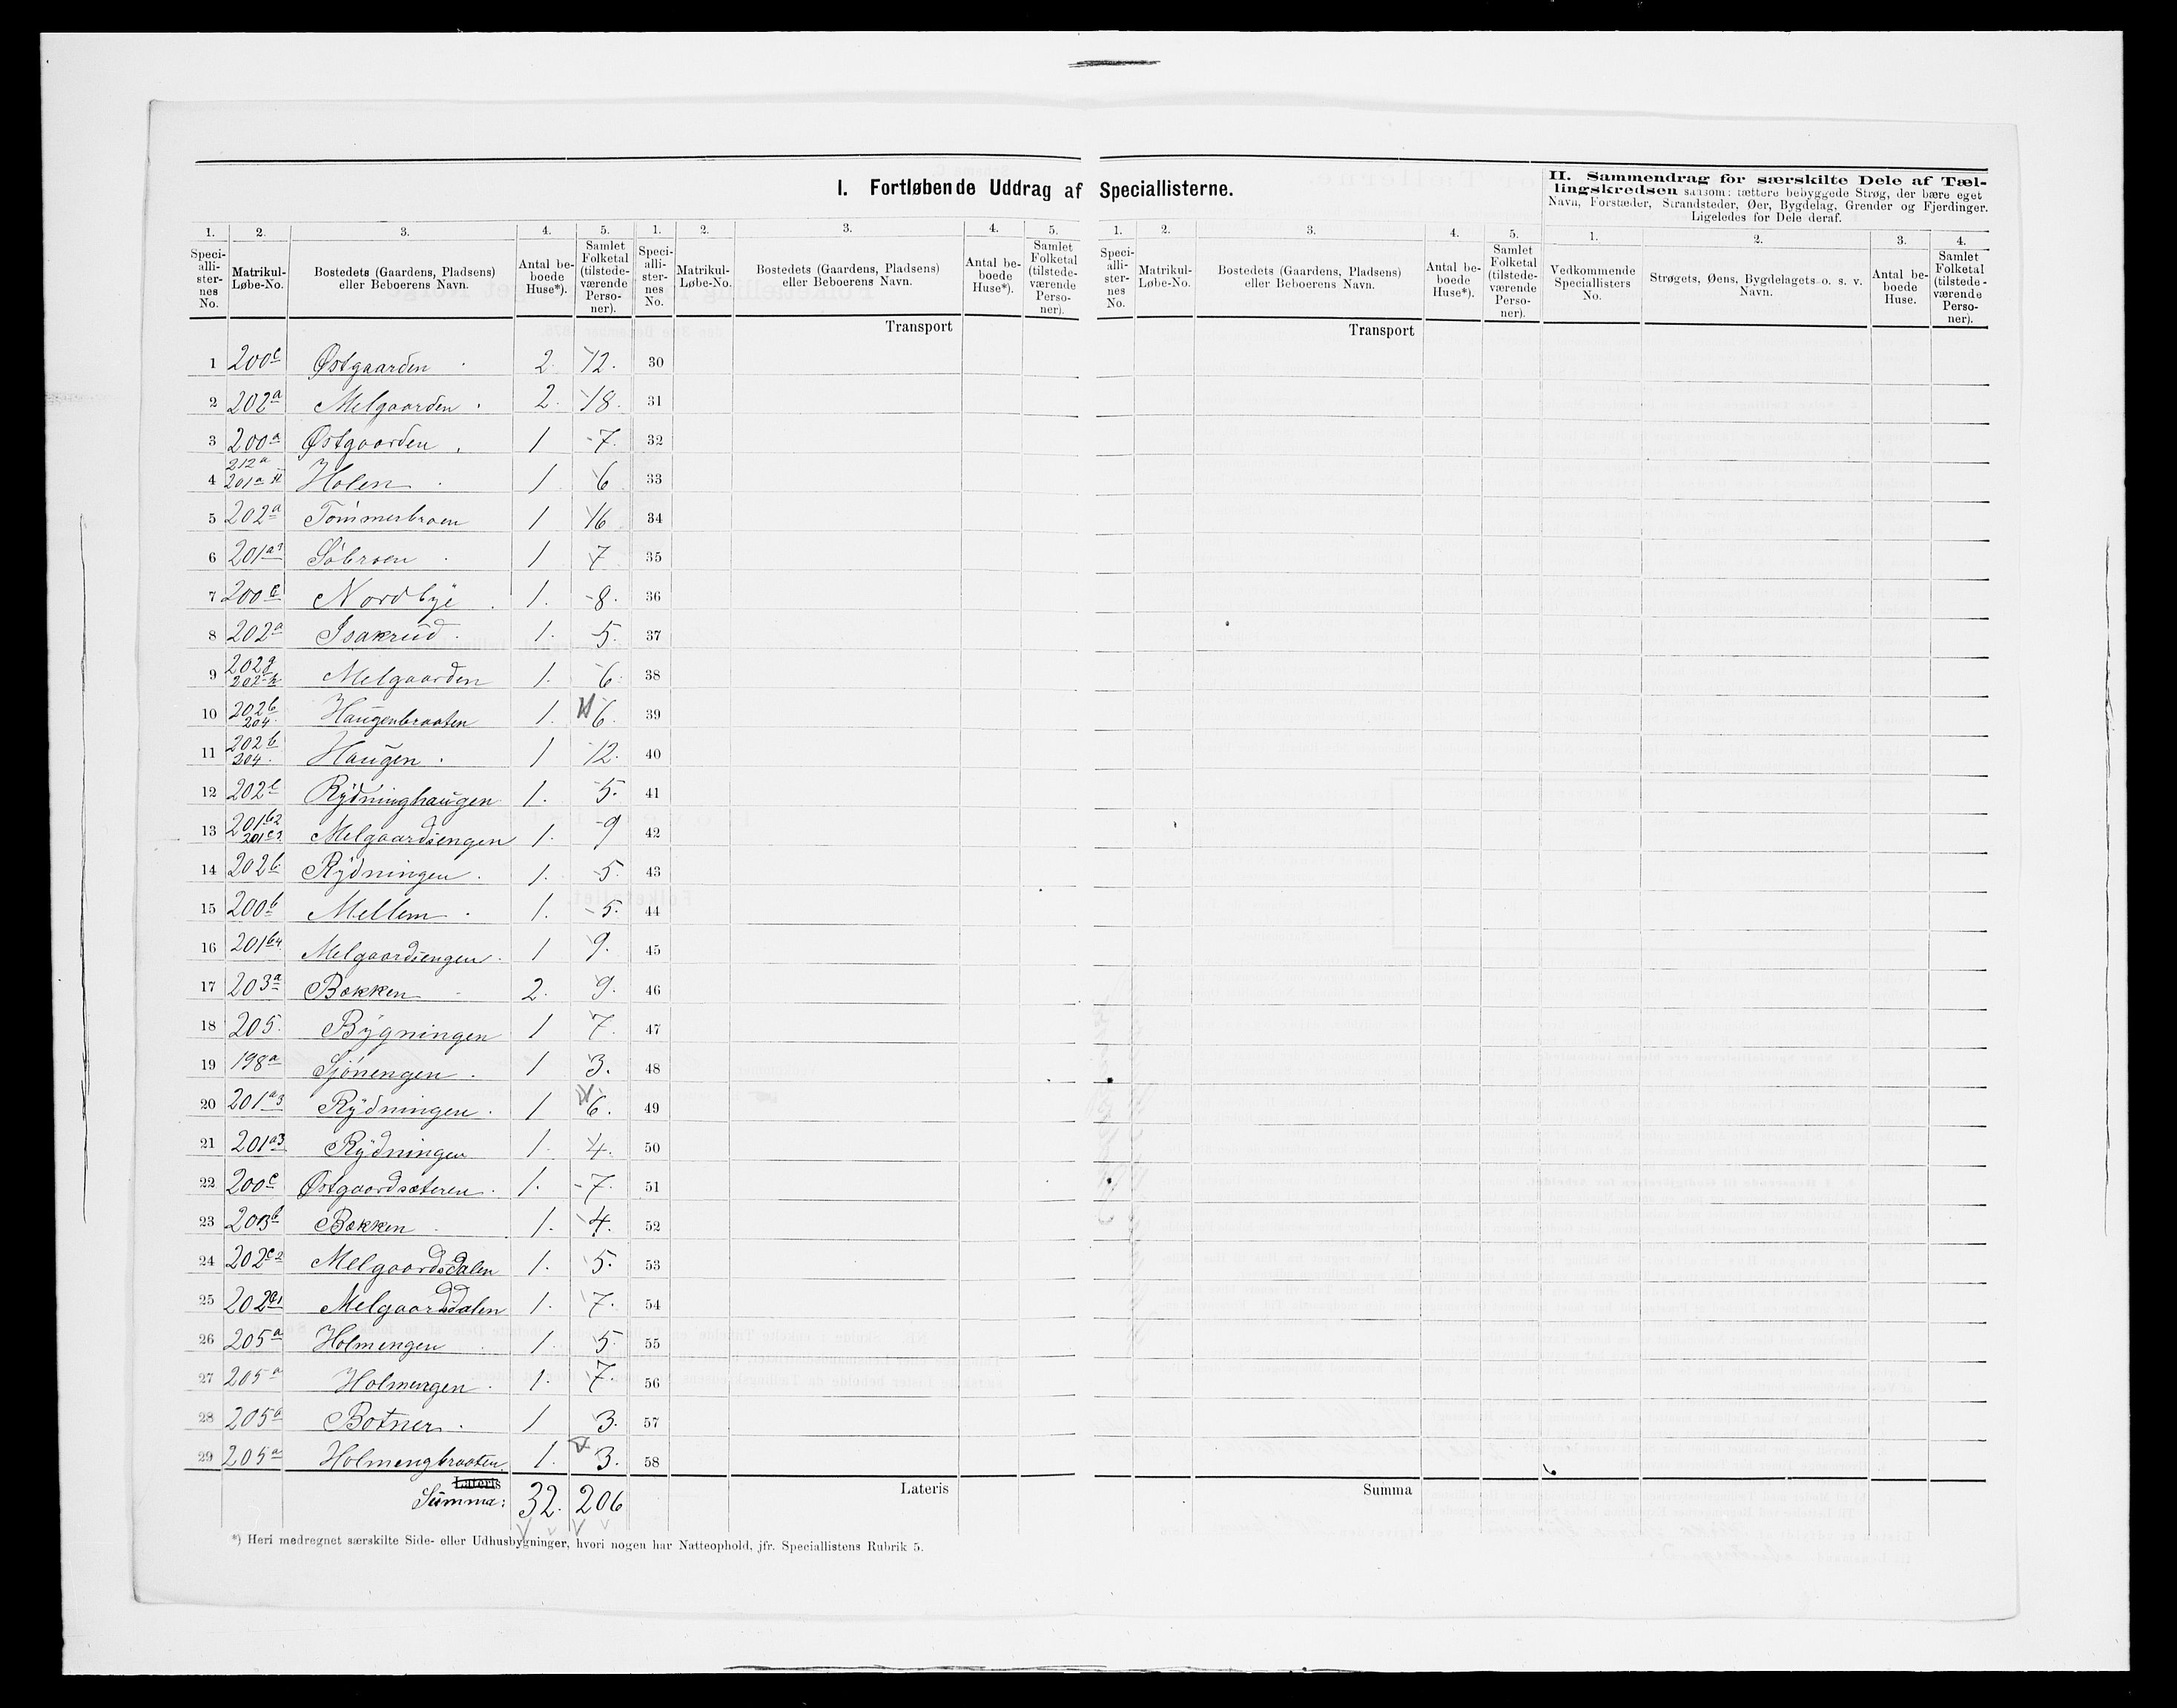 I. Fortløbende Uddrag af Speciallisterne.
II. Sammendrag for særskilte Dele af Tællingskredsen saasom: tættere bebyggede Strøg, der bære eget Navn, Forstæder, Strandsteder, Øer, Bygdelag, Grender og Fjerdinger. Ligeledes for Dele deraf.
1. 2. 3. 4. 5. 1. 2. 3. 4. 5. 1. 2. 3. 4. 5. 1. 2. 3. 4.
Speciallisternes No. Matrikul-Løbe-No. Bostedets (Gaardens, Pladsens) eller Beboerens Navn. Antal beboede Huse*). Samlet Folketal (tilstedeværende Personer).
Speciallisternes No. Matrikul-Løbe-No. Bostedets (Gaardens, Pladsens) eller Beboerens Navn. Antal beboede Huse*). Samlet Folketal (tilstedeværende Personer).
Speciallisternes No. Matrikul-Løbe-No. Bostedets (Gaardens, Pladsens) eller Beboerens Navn. Antal beboede Huse*). Samlet Folketal (tilstedeværende Personer).
Vedkommende Speciallisters No. Strøgets, Øens, Bygdelagets o. s. v. Navn. Antal beboede Huse. Samlet Folketal (tilstedeværende Personer).
Transport Transport
1 200c Østgaarden 2. 12. 30
2 202a Melgaarden. 2. 18. 31
3 200a Østgaarden. 1 7. 32
4 212a 201a Holen 1 6 33
5 202a Tømmerbraen 1 16 34
6 201a Søbroen 1 7 35
7 200c Nordbye 1. 8. 36
8 202a Isakrud. 1. 5. 37
9 202g 202h Melgaarden 1. 6. 38
10 202b 204. Haugenbraaten 1. 6. 39
11 202b 204. Haugen. 1 12. 40
12 202 Rydninghaugen 1. 5. 41
13 201b2 Melgaardsengen 1. 9 42
14 202b Rydningen. 1. 5. 43
15 200b Mellem. 1. 5. 44
16 201b4 Melgaardsengen. 1 9. 45
17 203a Bækken 2. 9. 46
18 205. Bygningen 1 7. 47
19 198a Sjønengen. 1 3. 48
20 201a3 Rydningen. 1 6. 49
21 201a3 Rydningen 1. 4. 50
22 200c Østgaardsæteren. 1. 7. 51
23 203b Bækken 1. 4. 52
24 202c2 Melgaardsdalen 1. 5. 53
25 202c1 Melgaardsdalen 1. 7. 54
26 205a Holmengen 1 5. 55
27 205a Holmengen. 1. 7. 56
28 205a Botner. 1 3. 57
29 205a Holmengbraaten. 1. 3. 58
Lateris Lateris Summa
Summa: 32. 206
*) Heri medregnet særskilte Side- eller Udhusbygninger, hvori nogen har Natteophold, jfr. Speciallistens Rubrik 5.